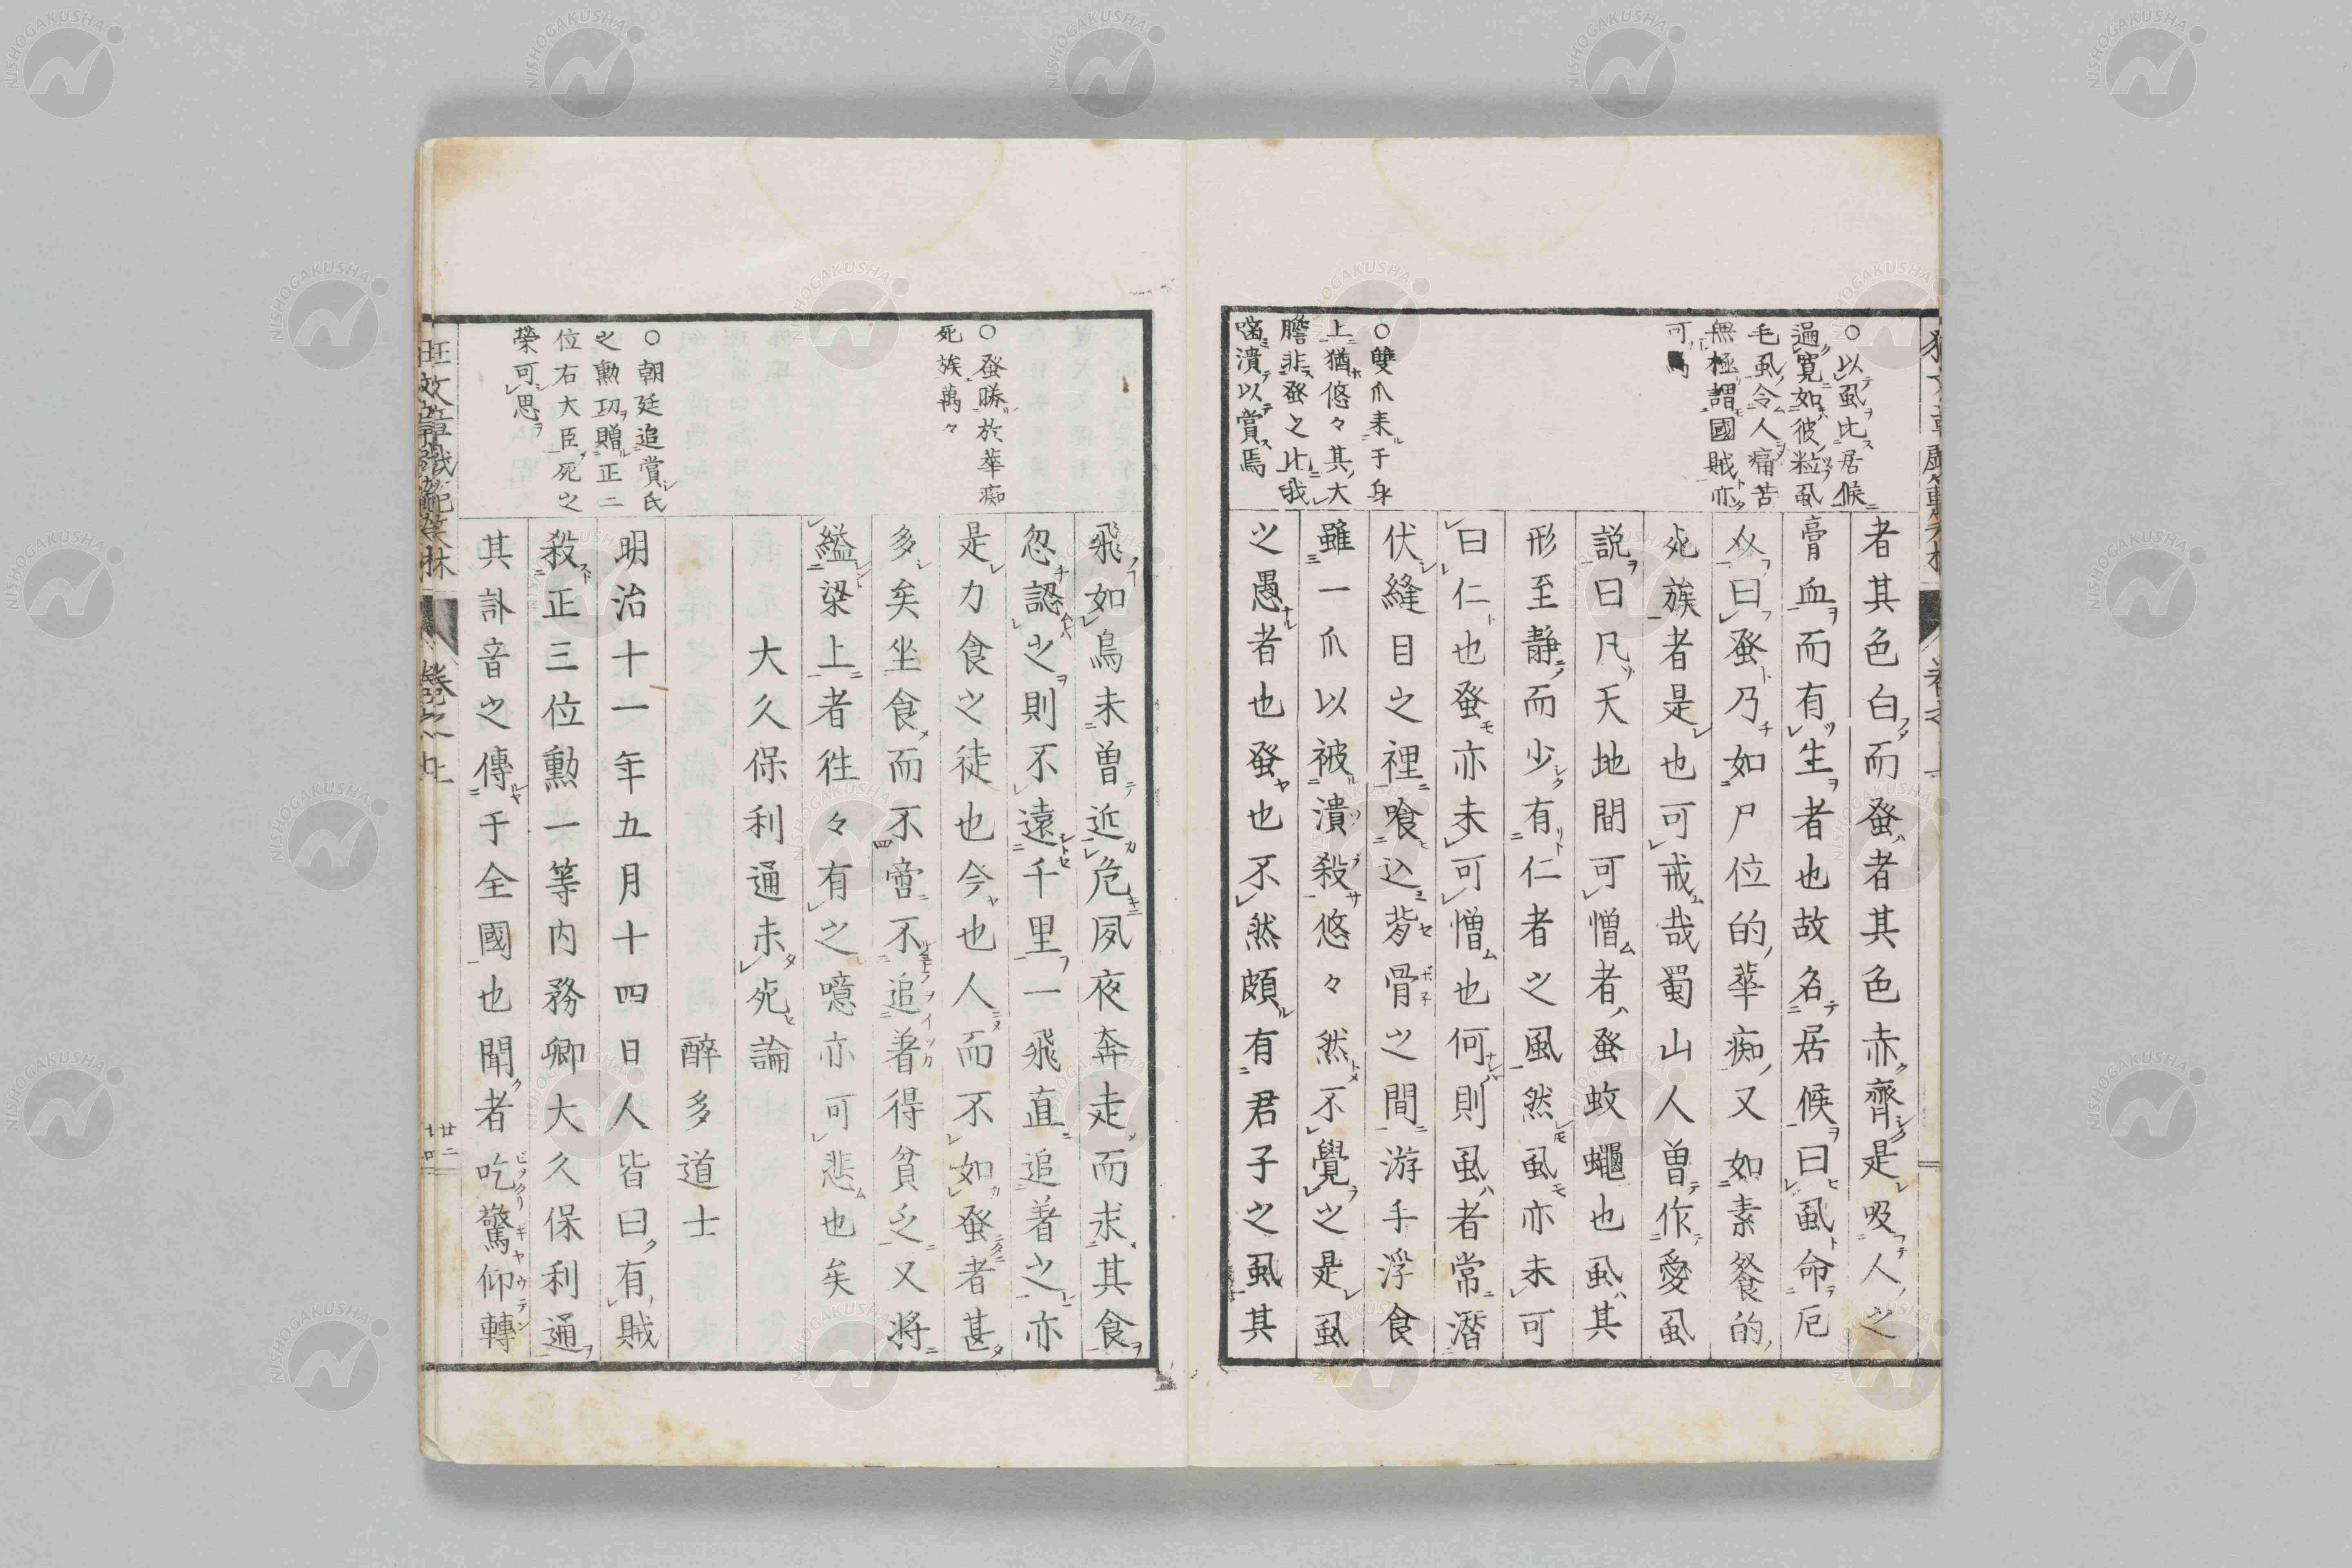 ○以虱比居候
過寛如彼粒虱
毛虱令人痛苦
無極謂國賊亦
可
○雙爪来于身
上猶悠々其大
膽非蚤之比我
當潰以賞焉
者其色白而蚤者其色赤齊是吸人之
膏血而有生者也故名居候曰虱命厄
曰蚤乃如尸位的華痴又如素餐的
死族者是也可戒哉蜀山人曽作愛虱
説曰凡天地間可憎者蚤蚊蠅也虱其
形至静而少有仁者之風然虱亦未可
曰仁也蚤亦未可憎也何則虱者常潛
伏縫目之裡喰込背骨之間游手浮食
雖一爪以被潰殺悠々然不覺之是虱
之愚者也蚤也不然頗有君子之虱其
○蚤勝於華痴
死族萬々
○朝廷追賞氏
之勲功贈正二
位右大臣死之
榮可思
飛如鳥未曽近危夙夜奔走而求其食
忽認之則不遠千里一飛直追着之亦
是力食之徒也今也人而不如蚤者甚
多矣坐食而不啻不追着得貧乏又将
縊梁上者徃々有之噫亦可悲也矣
大久保利通未死論
醉多道士
明治十一年五月十四日人皆曰有賊
殺正三位勲一等内務卿大久保利通
其訃音之傳于全國也聞者吃驚仰轉